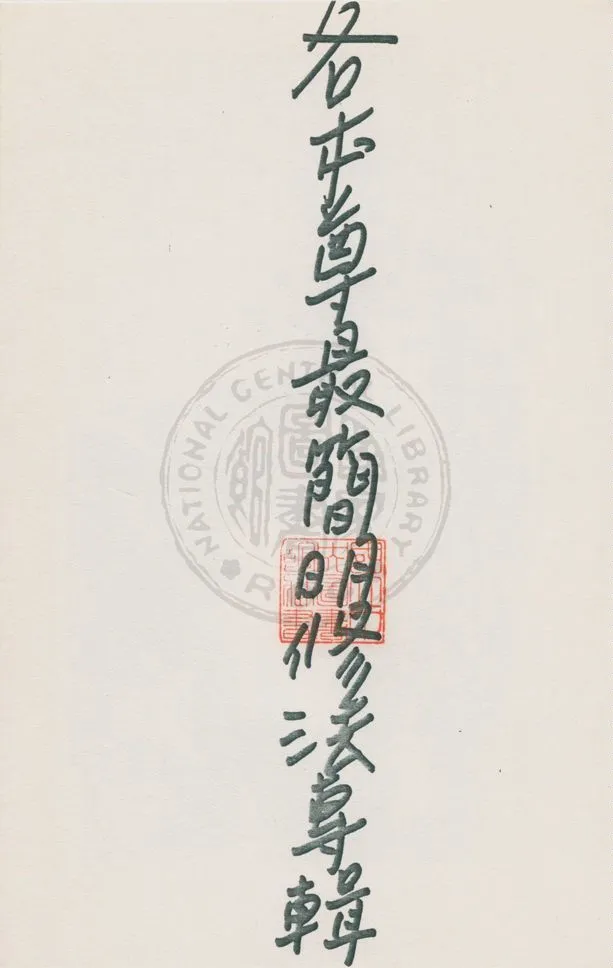 各本尊最簡明修法專輯
NATIONAL CENTRAL LIBRARY